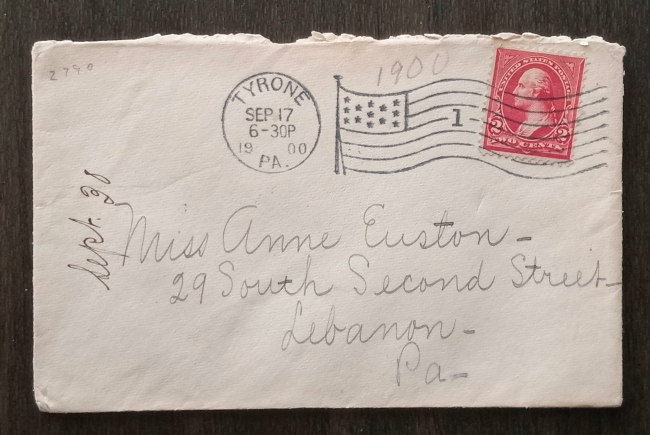 2790
1900
TYRONE
SEP 17
6-30P
19 00
PA.
1
UNITED STATES POSTAGE
2 2
TWO CENTS
Sept. 30
Miss Anne Euston-
29 South Second Street-
Lebanon-
Pa-